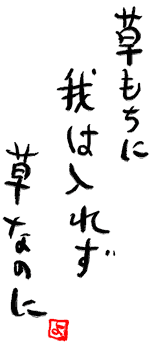 草もちに
我は入れず
草なのに
よ